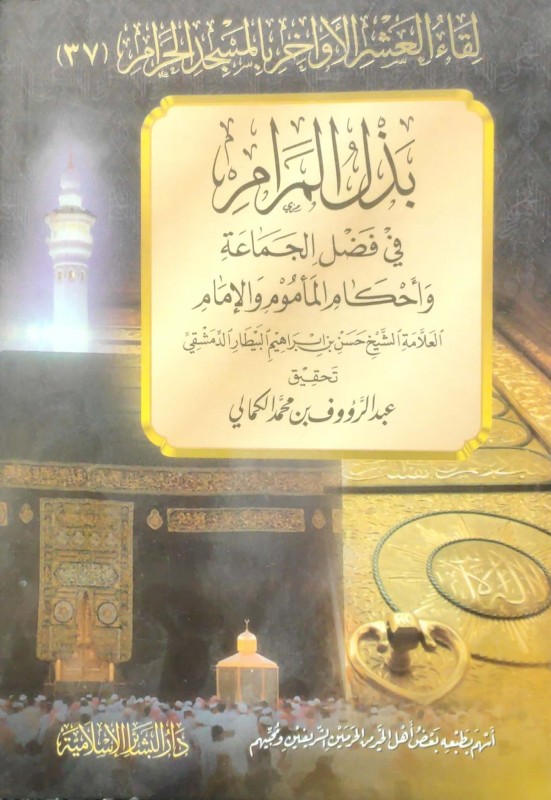 لقاء العشر الأواخر بالمسجد الحرام (٣٧)
بذل المرام
في فضل الجماعة
وأحكام المأموم والإمام
العلامة الشيخ حسن بن إبراهيم البيطار الدمشقي
تحقيق
عبد الرؤوف بن محمد الكمالي
أسهم بطبعه بعض أهل الخير من الحرمين الشريفين ومحبيهم
دار البشائر الإسلامية